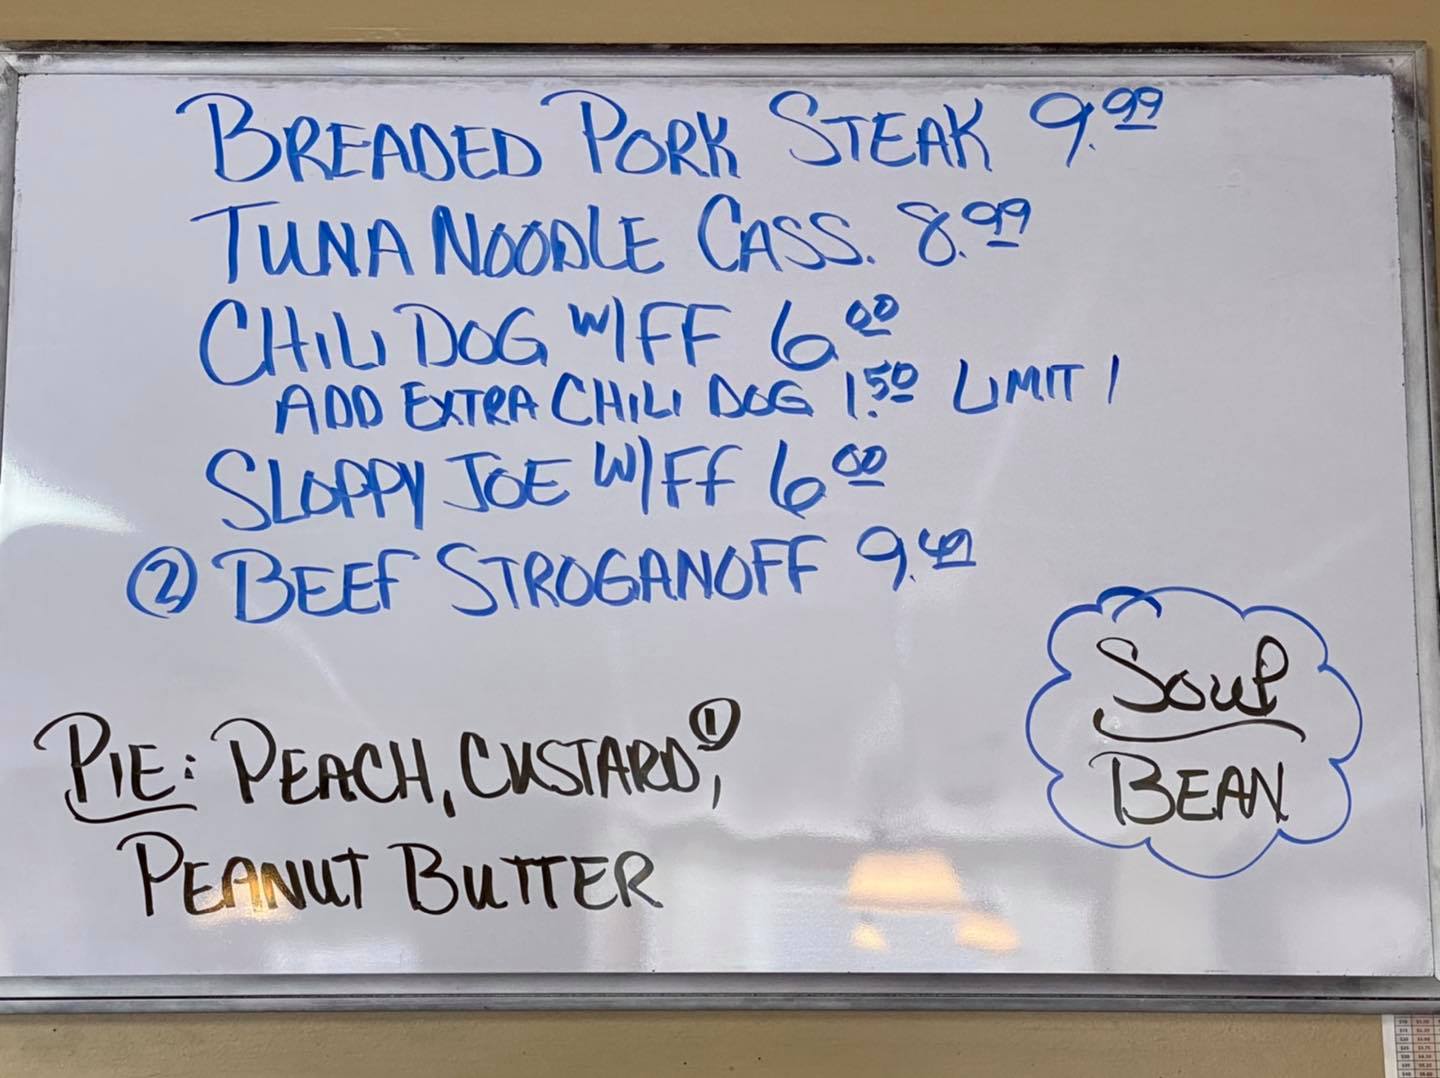 BREADED PORK STEAK 9.99
TUNA NOODLE CASS. 8.99
CHILI DOG W/FF 6.00
ADD EXTRA CHILI DOG 1.50 LIMIT 1
SLOPPY JOE W/FF 6.00
② BEEF STROGANOFF 9.49
SOUP
BEAN
PIE: PEACH, CUSTARD①,
PEANUT BUTTER